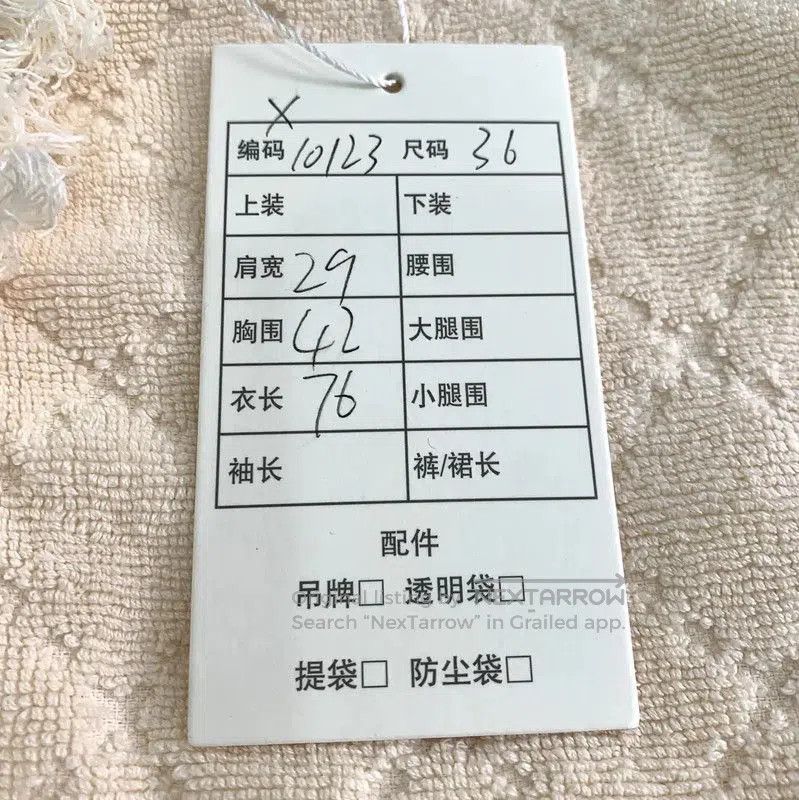 X
编码 10123 尺码 36
上装 下装
肩宽 29 腰围
胸围 42 大腿围
衣长 76 小腿围
袖长 裤/裙长
配件
吊牌□ 透明袋□
Original listing by NEXTARROW
Search “NexTarrow” in Grailed app.
提袋□ 防尘袋□